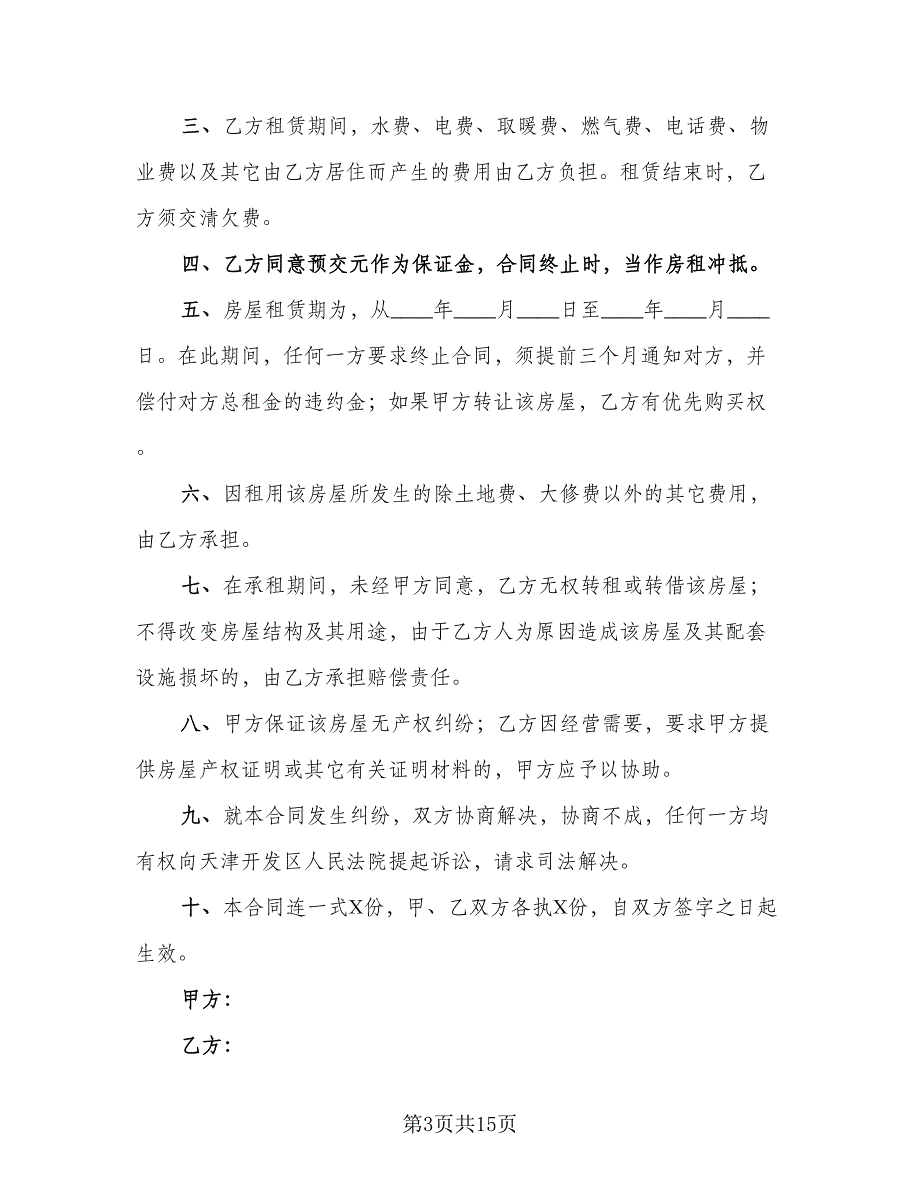 三、乙方租赁期间，水费、电费、取暖费、燃气费、电话费、物
业费以及其它由乙方居住而产生的费用由乙方负担。租赁结束时，乙
方须交清欠费。
四、乙方同意预交元作为保证金，合同终止时，当作房租冲抵。
五、房屋租赁期为，从____年____月____日至____年____月____
日。在此期间，任何一方要求终止合同，须提前三个月通知对方，并
偿付对方总租金的违约金；如果甲方转让该房屋，乙方有优先购买权
。
六、因租用该房屋所发生的除土地费、大修费以外的其它费用，
由乙方承担。
七、在承租期间，未经甲方同意，乙方无权转租或转借该房屋；
不得改变房屋结构及其用途，由于乙方人为原因造成该房屋及其配套
设施损坏的，由乙方承担赔偿责任。
八、甲方保证该房屋无产权纠纷；乙方因经营需要，要求甲方提
供房屋产权证明或其它有关证明材料的，甲方应予以协助。
九、就本合同发生纠纷，双方协商解决，协商不成，任何一方均
有权向天津开发区人民法院提起诉讼，请求司法解决。
十、本合同连一式X份，甲、乙双方各执X份，自双方签字之日起
生效。
甲方：
乙方：
第3页共15页